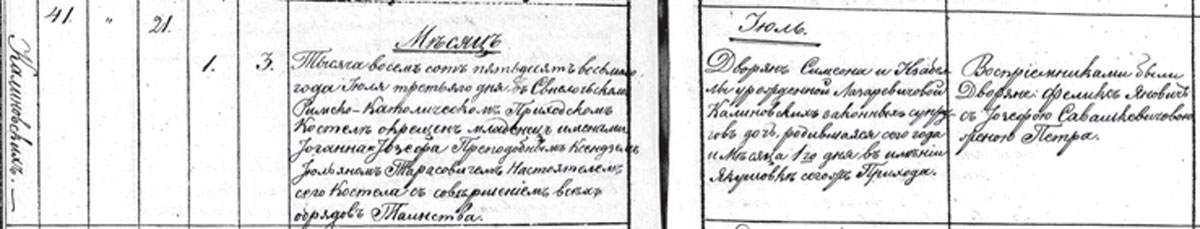 41. " 21.
Калиновских.
Мѣсяцъ
Июль.
1. 3.
Тысяча восемь сотъ пятьдесятъ восьмого
года Іюля третьяго дня въ
Римско-Католическомъ Приходскомъ
Костелѣ окрещенъ младенецъ именами
Іоанна-Іозефа Преподобнымъ Ксендземъ
Юльяномъ Тарасовичемъ Настоятелемъ
сего Костела съ совершеніемъ всѣхъ
обрядовъ Таинства.
Дворянъ Симеона и Изабел-
лы урожденной Лазаревичовой
Калиновскихъ законныхъ супру-
говъ дочь, родившаяся сего года
и Мѣсяца 1го дня въ имѣніи
Якушовкѣ сего Прихода.
Воспріемниками были
Дворяне: Феликсъ Яновичъ
съ Іозефою Савашкевичовою
женою Петра.